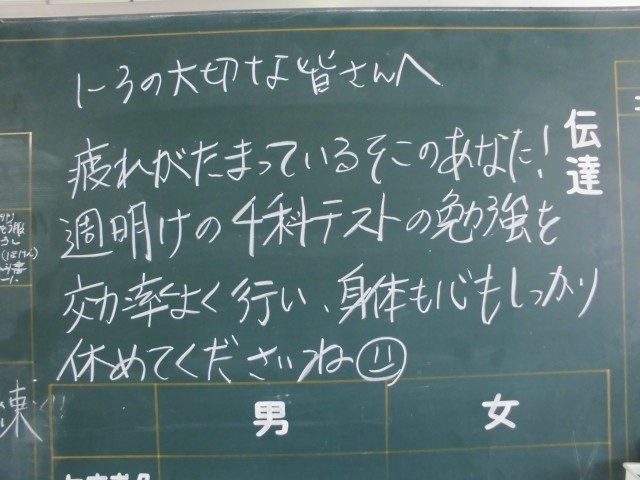 1-3の大切な皆さんへ
疲れがたまっているそこのあなた！
週明けの4科テストの勉強を
効率よく行い、身体も心もしっかり
休めてくださいね
伝達
男
女
練